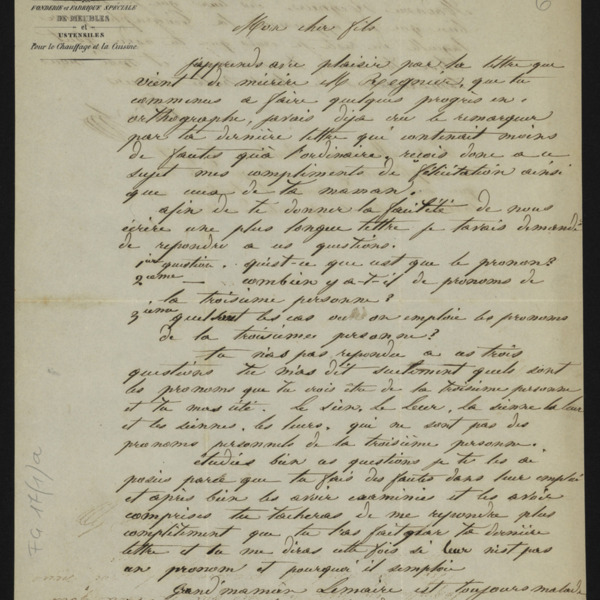 FONDERIE et FABRIQUE SPÉCIALE
DE MEUBLES
et
USTENSILES
Pour le Chauffage et la Cuisine
6
Mon cher fils
J'apprends avec plaisir par la lettre que
vient de m'écrire Mr Regnier, que tu
commence a faire quelques progrès en
orthographe, j'avais déja cru le remarquer
par ta dernière lettre qui contenait moins
de fautes qu'a l'ordinaire, reçois donc a ce
sujet mes compliments de félicitation ainsi
que ceux de ta maman.
afin de te donner la facilité de nous
écrire une plus longue lettre je t'avais demandé
de repondre a ces questions.
1ier question. qu'est-ce que c'est que le pronom?
2ieme — combien y a-t-il de pronoms de
la troisieme personne?
3ieme quels sont les cas ou on emploie les pronoms
de la troisieme personne?
tu n'as pas repondu a ces trois
questions tu m'as dit seulement quels sont
les pronoms que tu crois être de la troisieme personne
et tu m'as cité. Le sien, Le leur, la sienne la leur
et les siennes, les leurs, qui ne sont pas des
pronoms personnels de la troisième personne.
étudies bien ces questions je te les ai
posées parce que tu fais des fautes dans leur emploi
et après bien les avoir examinées et les avoir
comprises tu tacheras de me repondre plus
complètement que tu l'as fait par ta dernière
lettre et tu me diras cette fois si leur n'est pas
un pronom et pourquoi il s'emploie
Grand'maman Lemaire est toujours malade
FG 17(1)a